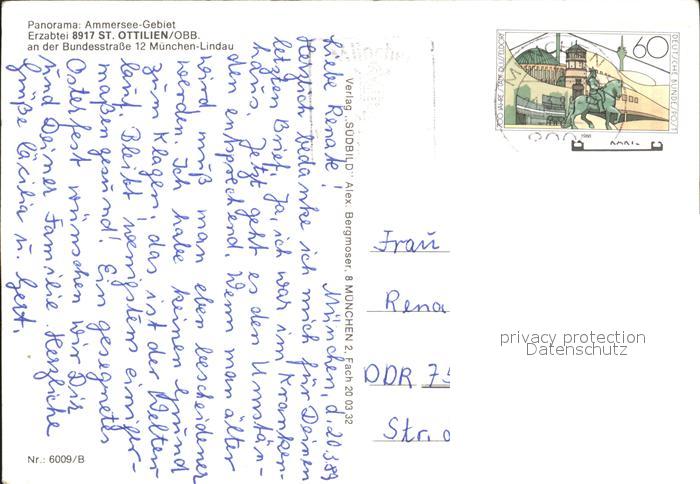 Panorama: Ammersee-Gebiet
Erzabtei 8917 ST. OTTILIEN/OBB.
an der Bundesstraße 12 München-Lindau
München, d. 20.3.89
Liebe Renate!
Herzlich bedanke ich mich für Deinen
letzten Brief. Ja, ich war im Kranken-
haus. Jetzt geht es den Umstän-
den entsprechend. Wenn man älter
wird muß man eben bescheidener
werden. Ich habe keinen Grund
zum Klagen, das ist der Welten
lauf. Bleibt wenigstens einiger-
maßen gesund! Ein gesegnetes
Osterfest wünschen wir Dir
und Deiner Familie. Herzliche
Grüße Cäcilia u. Gert.
Nr.: 6009/B
Verlag „SÜDBILD“ Alex. Bergmoser, 8 MÜNCHEN 2, Fach 20 03 32
60
DEUTSCHE BUNDESPOST
700 JAHRE STADT DÜSSELDORF
1988
Frau
Rena
DDR 75
Str. d
privacy protection
Datenschutz